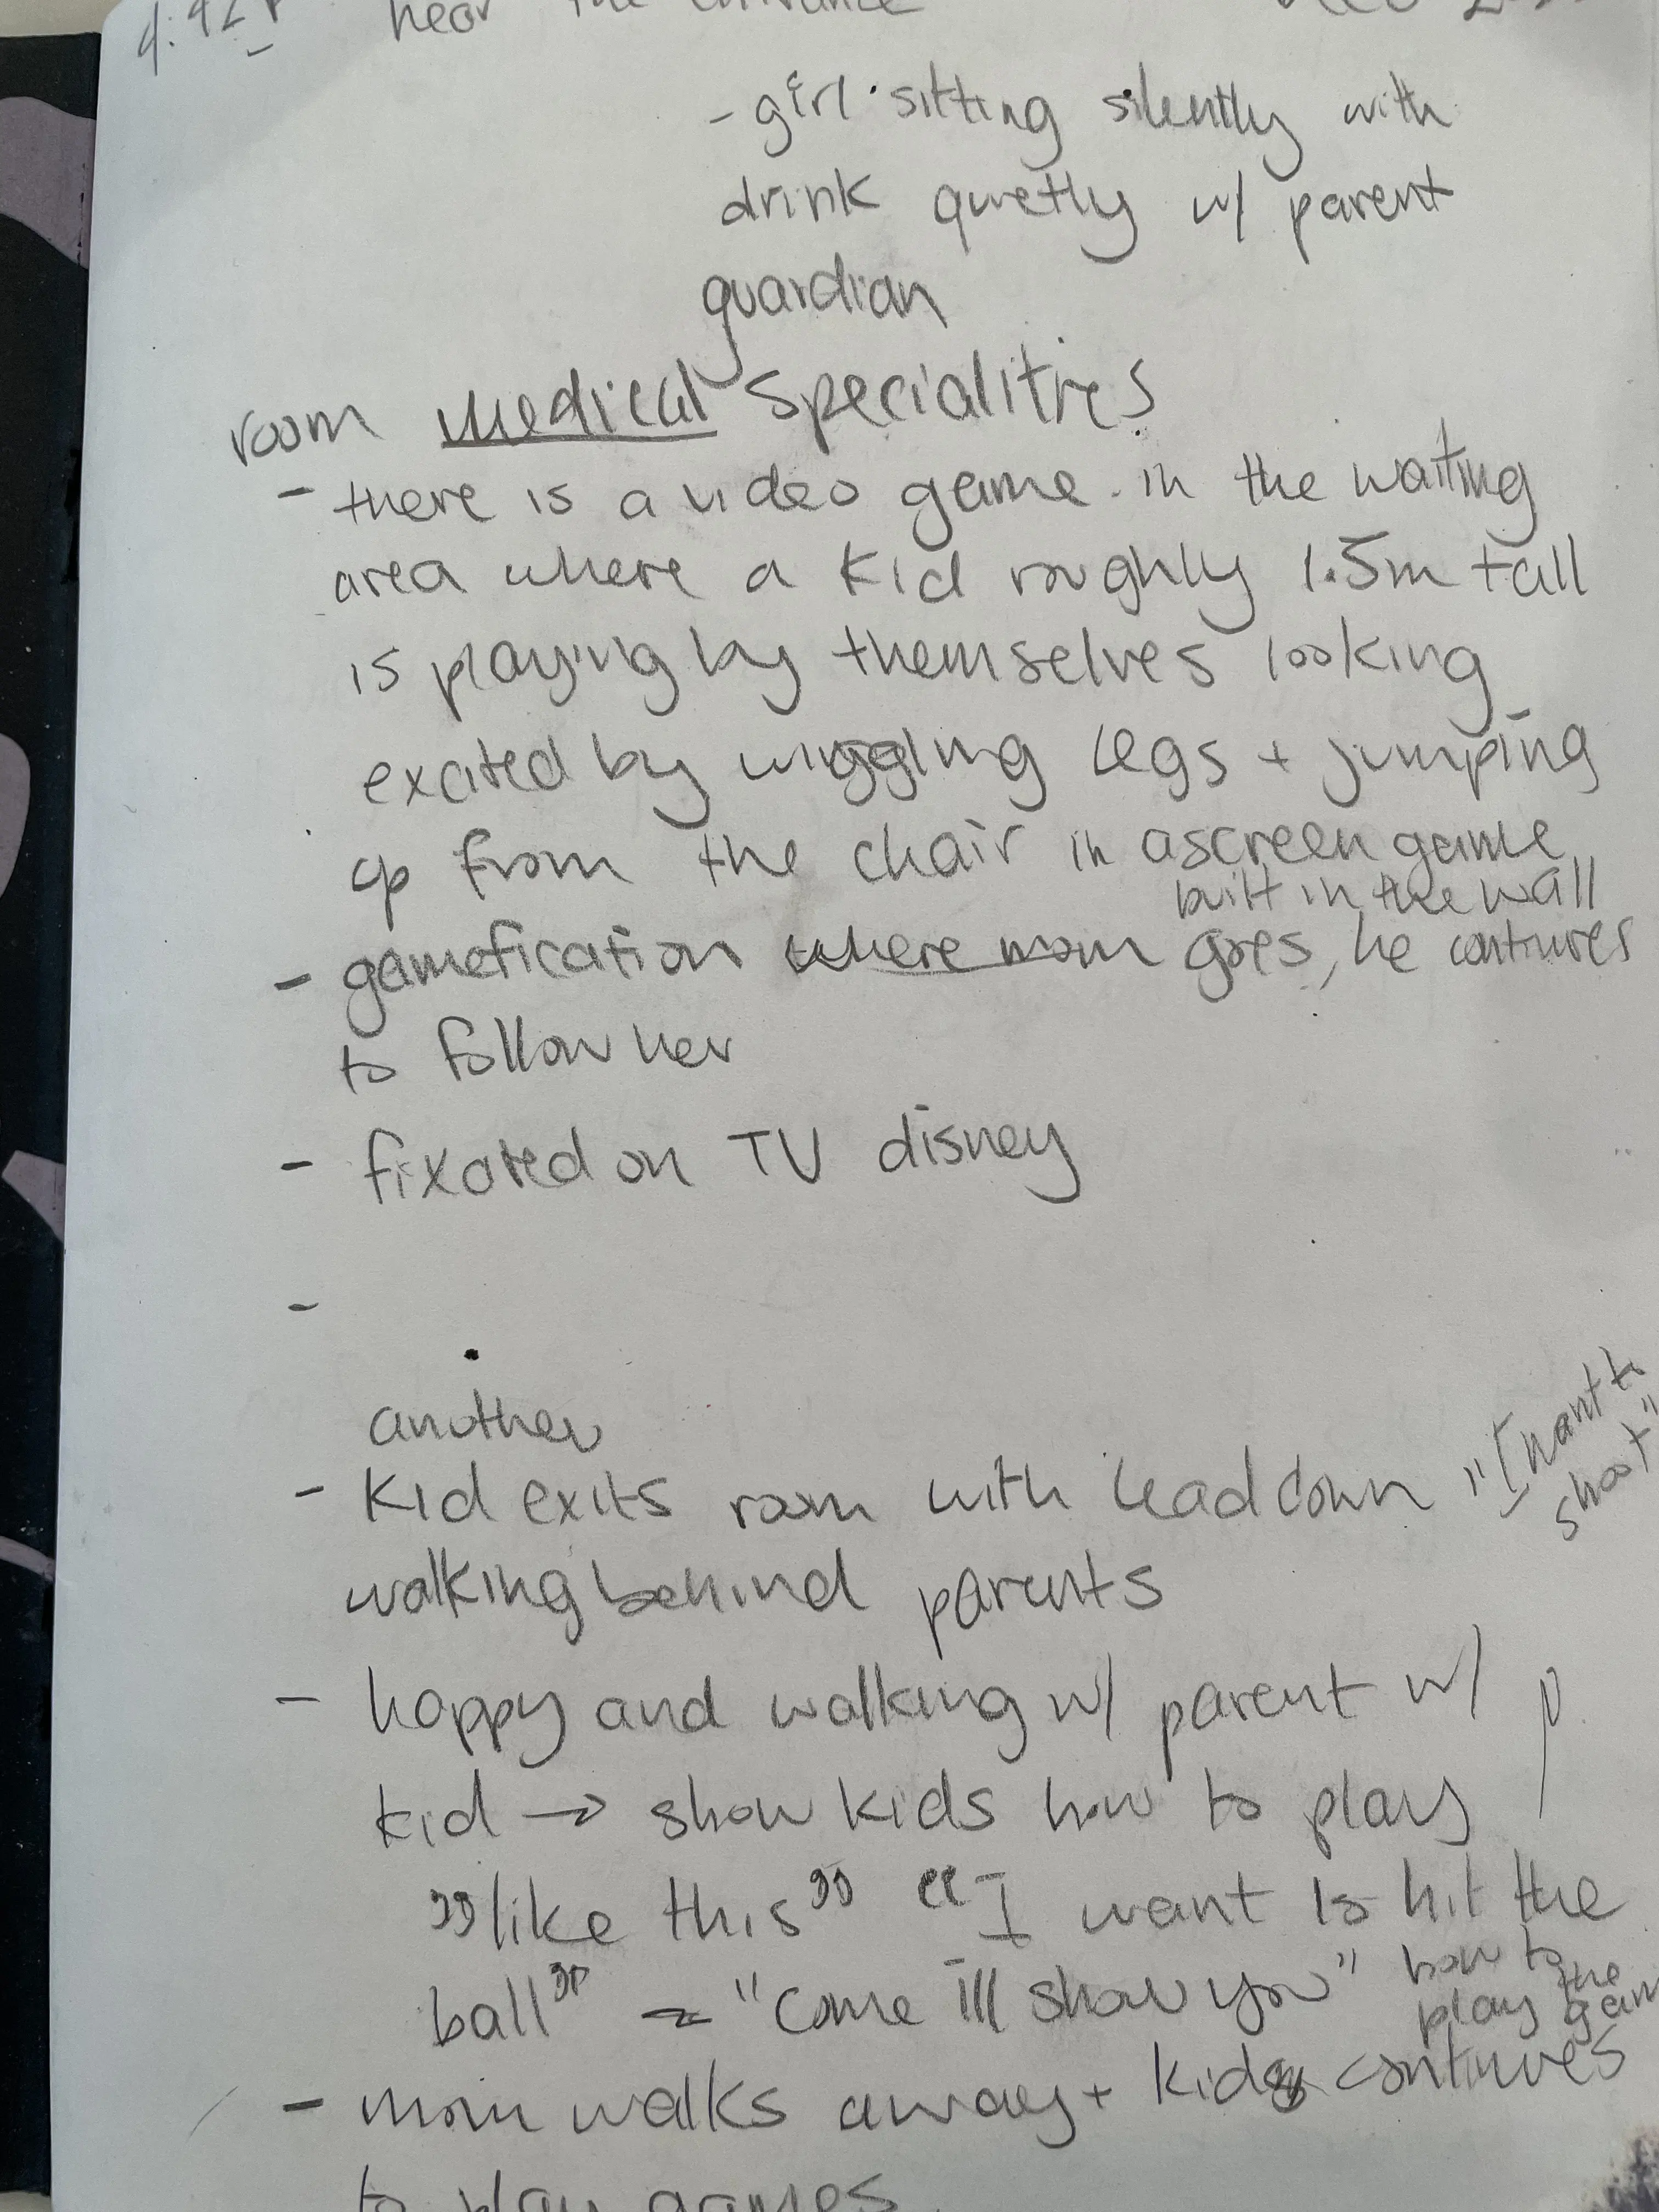 near the entrance
- girl sitting silently with
drink quietly w/ parent
guardian
room medical specialities
- there is a video game in the waiting
area where a kid roughly 1.5m tall
is playing by themselves looking
excited by wiggling legs + jumping
up from the chair in a screen game
built in the wall
- gamefication where mom goes, he continues
to follow her
- fixated on TV disney
-
another
- kid exits room with head down "I want to
shoot"
walking behind parents
- happy and walking w/ parent w/
kid → show kids how to play
"like this" "I want to hit the
ball" "come ill show you" how to
play the gam
- mom walks away + kid continues
to play games